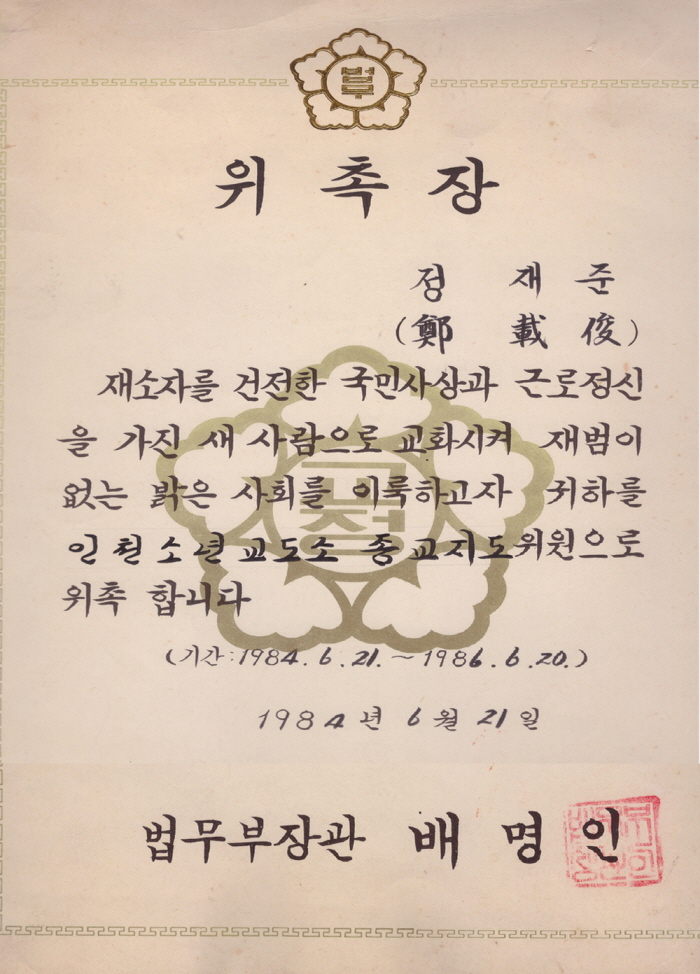 법무
위촉장
정 재준
(鄭 載俊)
재소자를 건전한 국민사상과 근로정신
을 가진 새 사람으로 교화시켜 재범이
없는 밝은 사회를 이룩하고자 귀하를
인천소년교도소 종교지도위원으로
위촉 합니다
(기간:1984.6.21.~1986.6.20.)
1984년 6월 21일
법무부장관 배명인